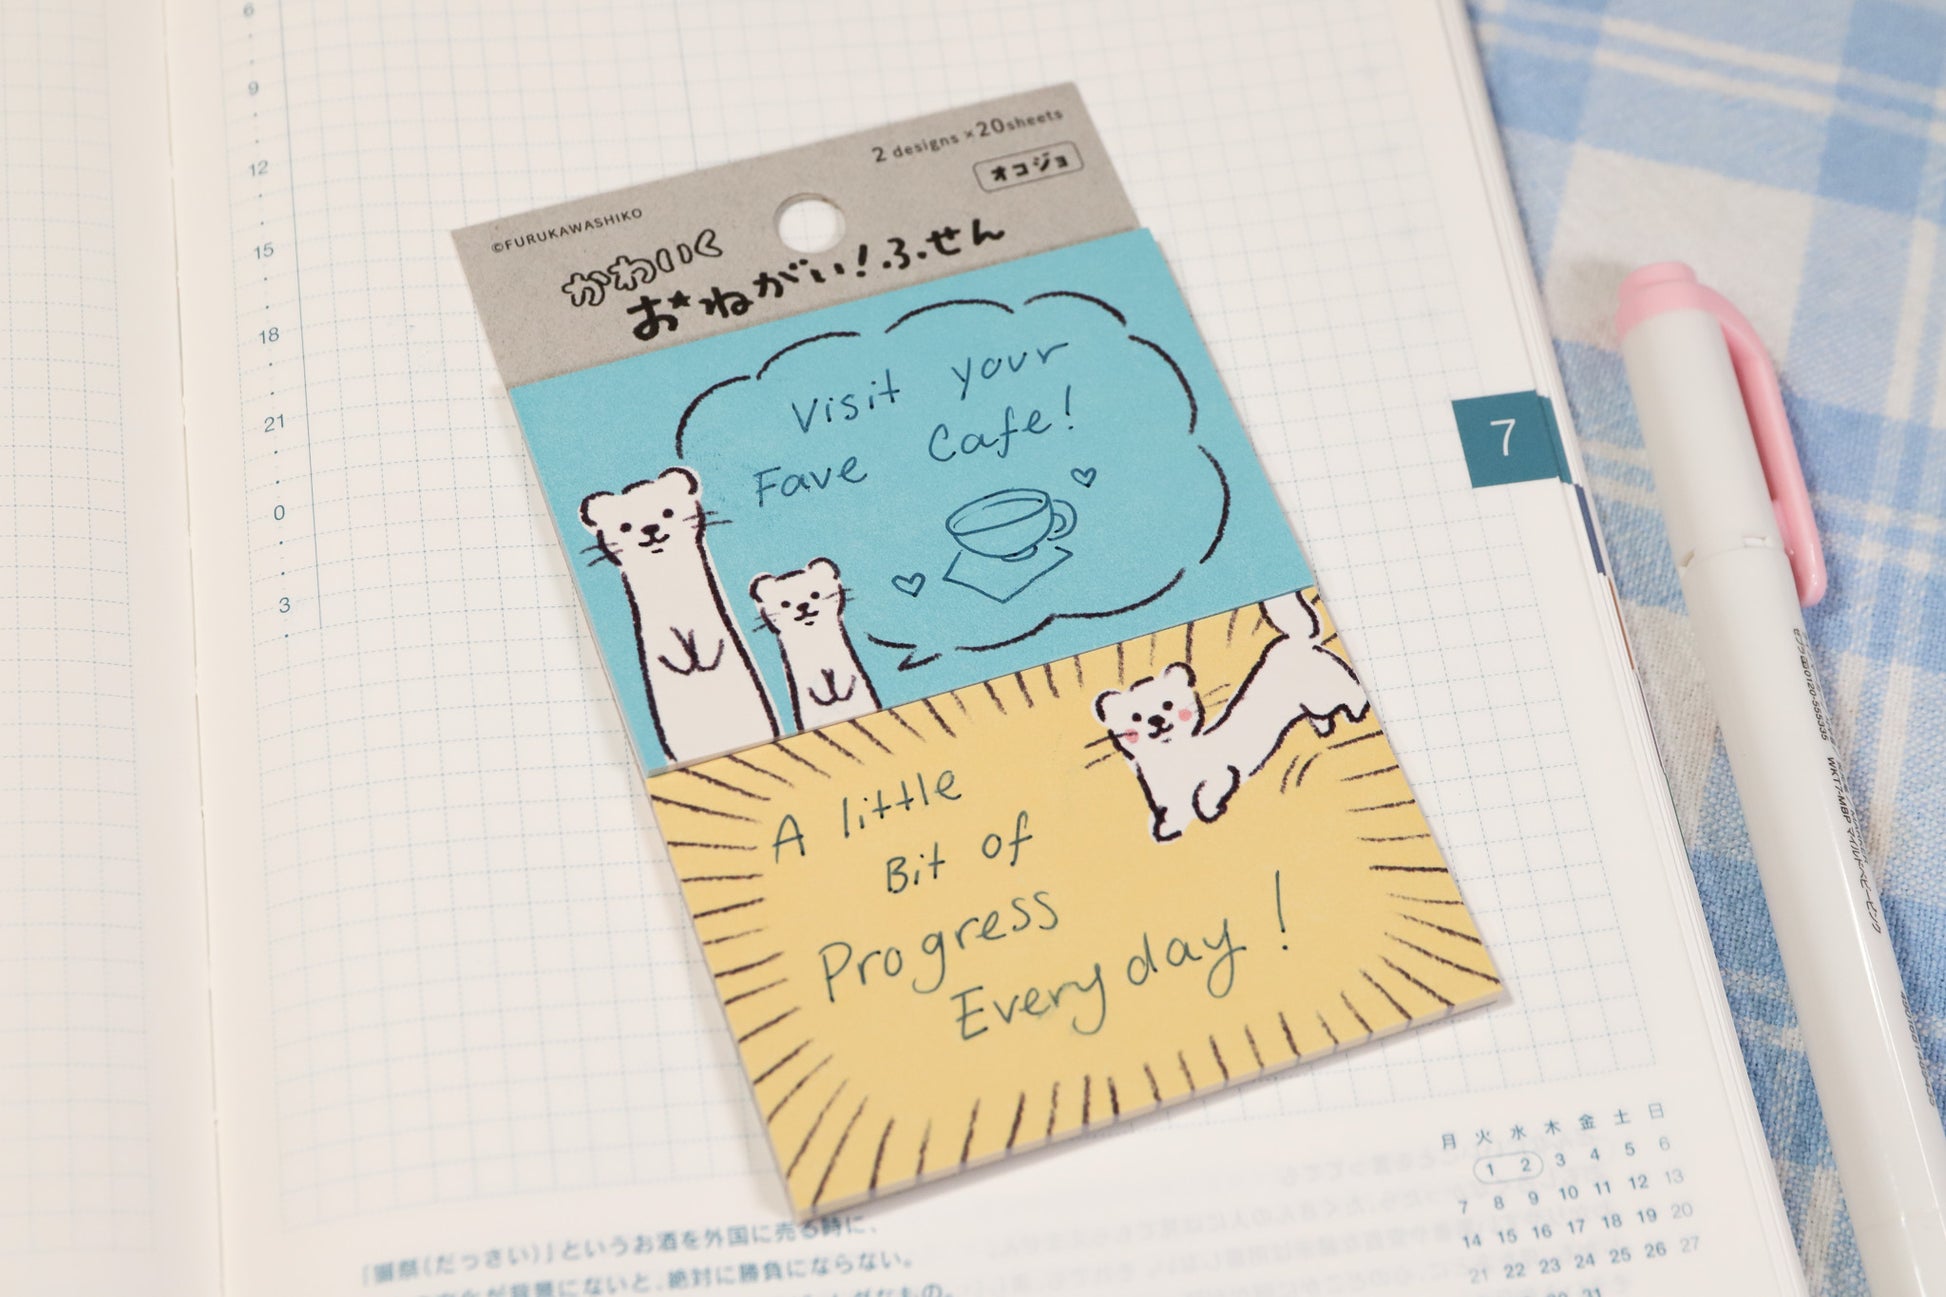 6
9
12
15
18
21
0
3
2 designs ×20sheets
オコジョ
©FURUKAWASHIKO
かわいく
おねがい!ふせん
Visit your
Fave Cafe!
A little
Bit of
Progress
Everyday!
7
月 火 水 木 金 土 日
1 2 3 4 5 6
7 8 9 10 11 12 13
14 15 16 17 18 19 20
21 22 23 24 25 26 27
31
「獺祭(だっさい)」というお酒を外国に売る時に、
背景にないと、絶対に勝負にならない。
なもの。
0120-555335
WKT7-MBP マイルドベビーピンク